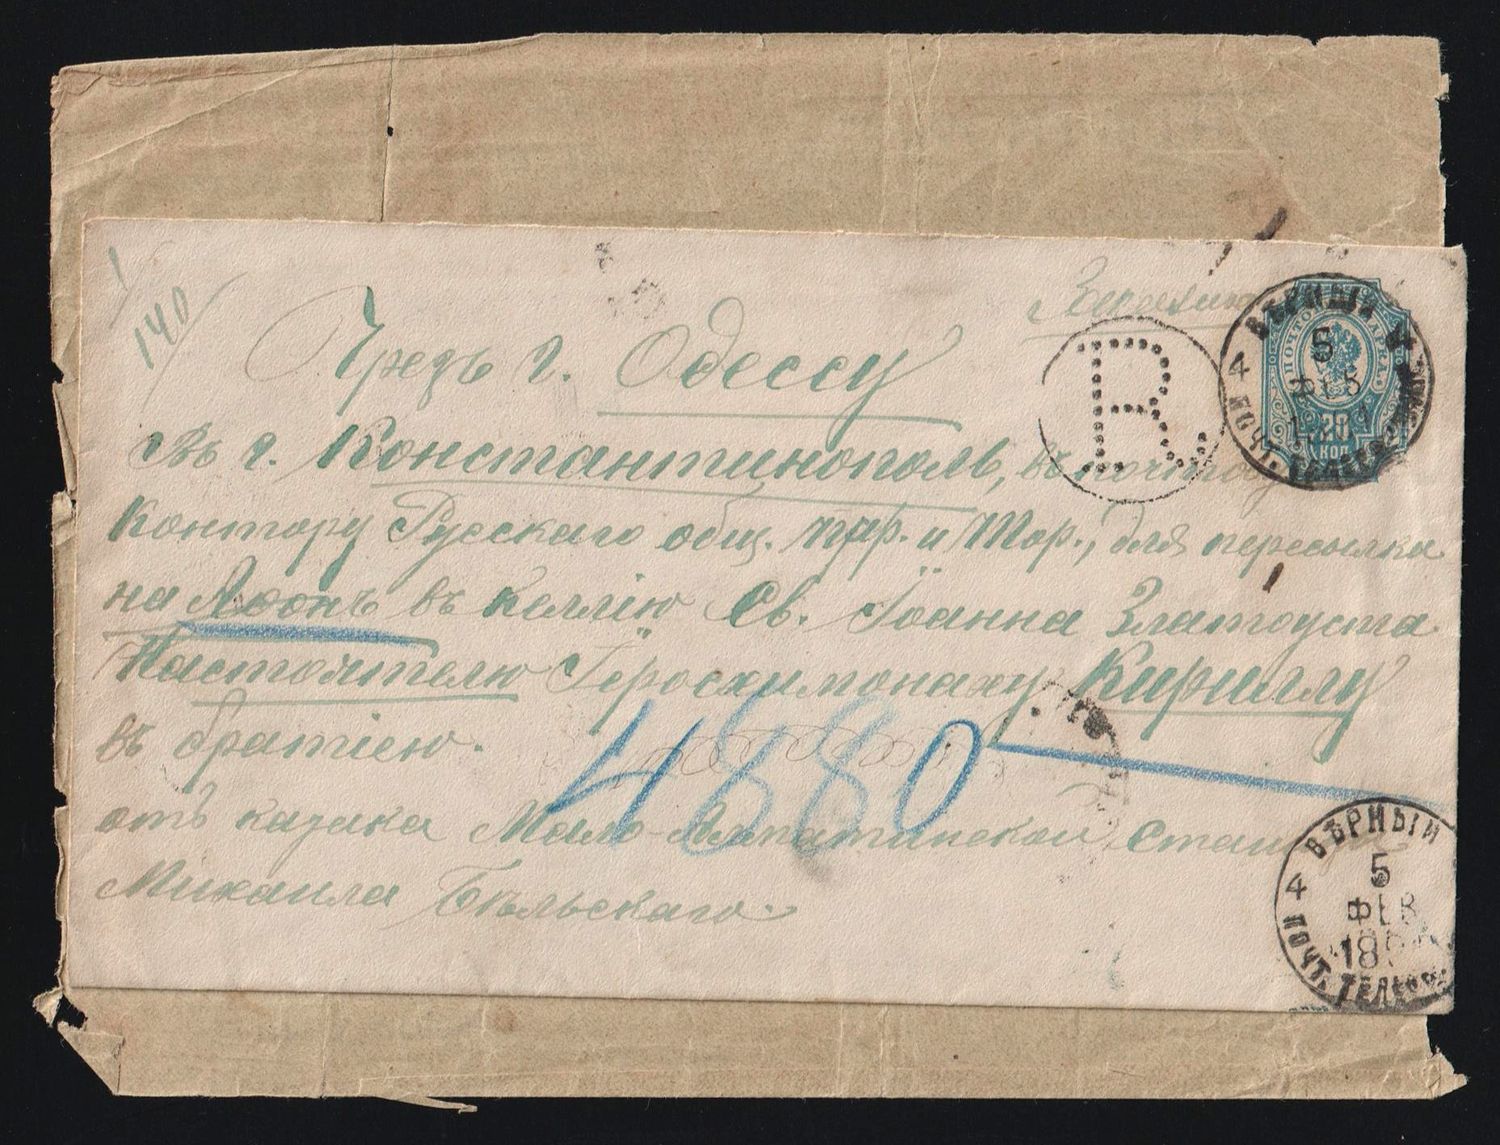 140
Заказное
Чрезъ г. Одессу
Въ г. Константинополь, въ почтовую
контору Русскаго общ. пар. и Тор., для пересылки
на Афонъ въ келлію Св. Іоанна Златоуста
Настоятелю Іеросхимонаху Кириллу
въ братіею.
отъ казака Мало-Алматинской стан
Михаила Бѣльскаго.
4880
R
ПОЧТОВАЯ МАРКА
20
КОП.
ВѢРНЫЙ
4
5
ФЕВ
ПОЧТ.
ВѢРНЫЙ
4
5
ФЕВ
ПОЧТ. ТЕЛЕГР